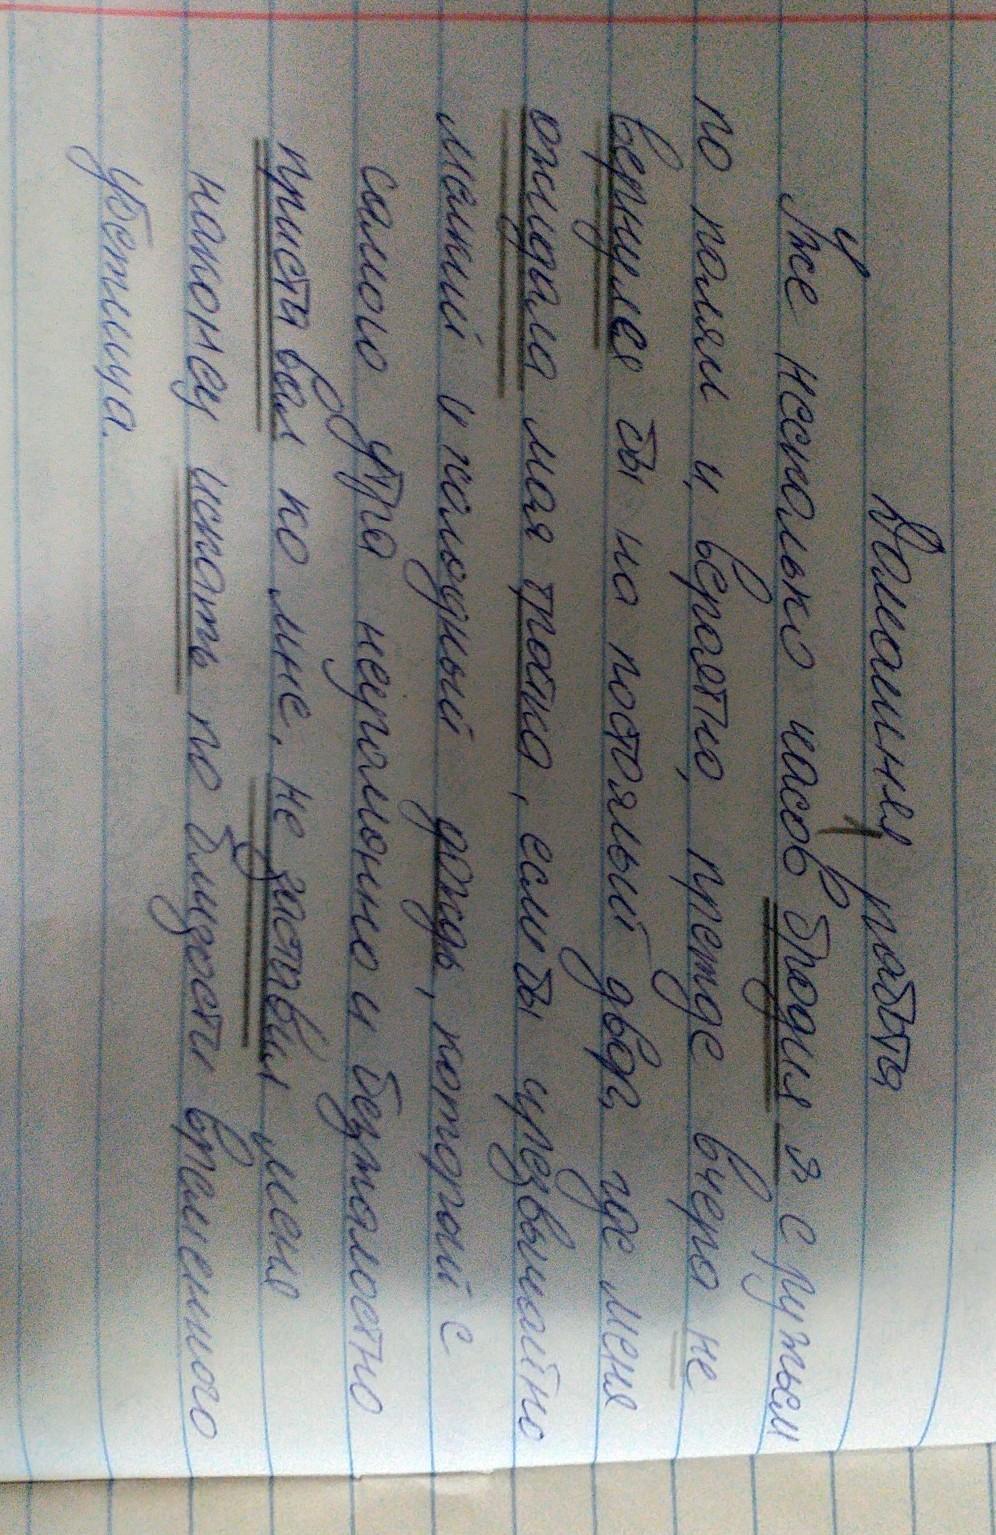 Домашняя работа
Уже несколько часов бродил я с ружьем
по полям и, вероятно, прежде вечера не
вернулся бы на постоялый двор, где меня
ожидала моя тройка, если бы чрезвычайно
мелкий и холодный дождь, который с
самого утра неугомонно и безжалостно
приставал ко мне, не заставил меня
наконец искать по близости временного
убетища.